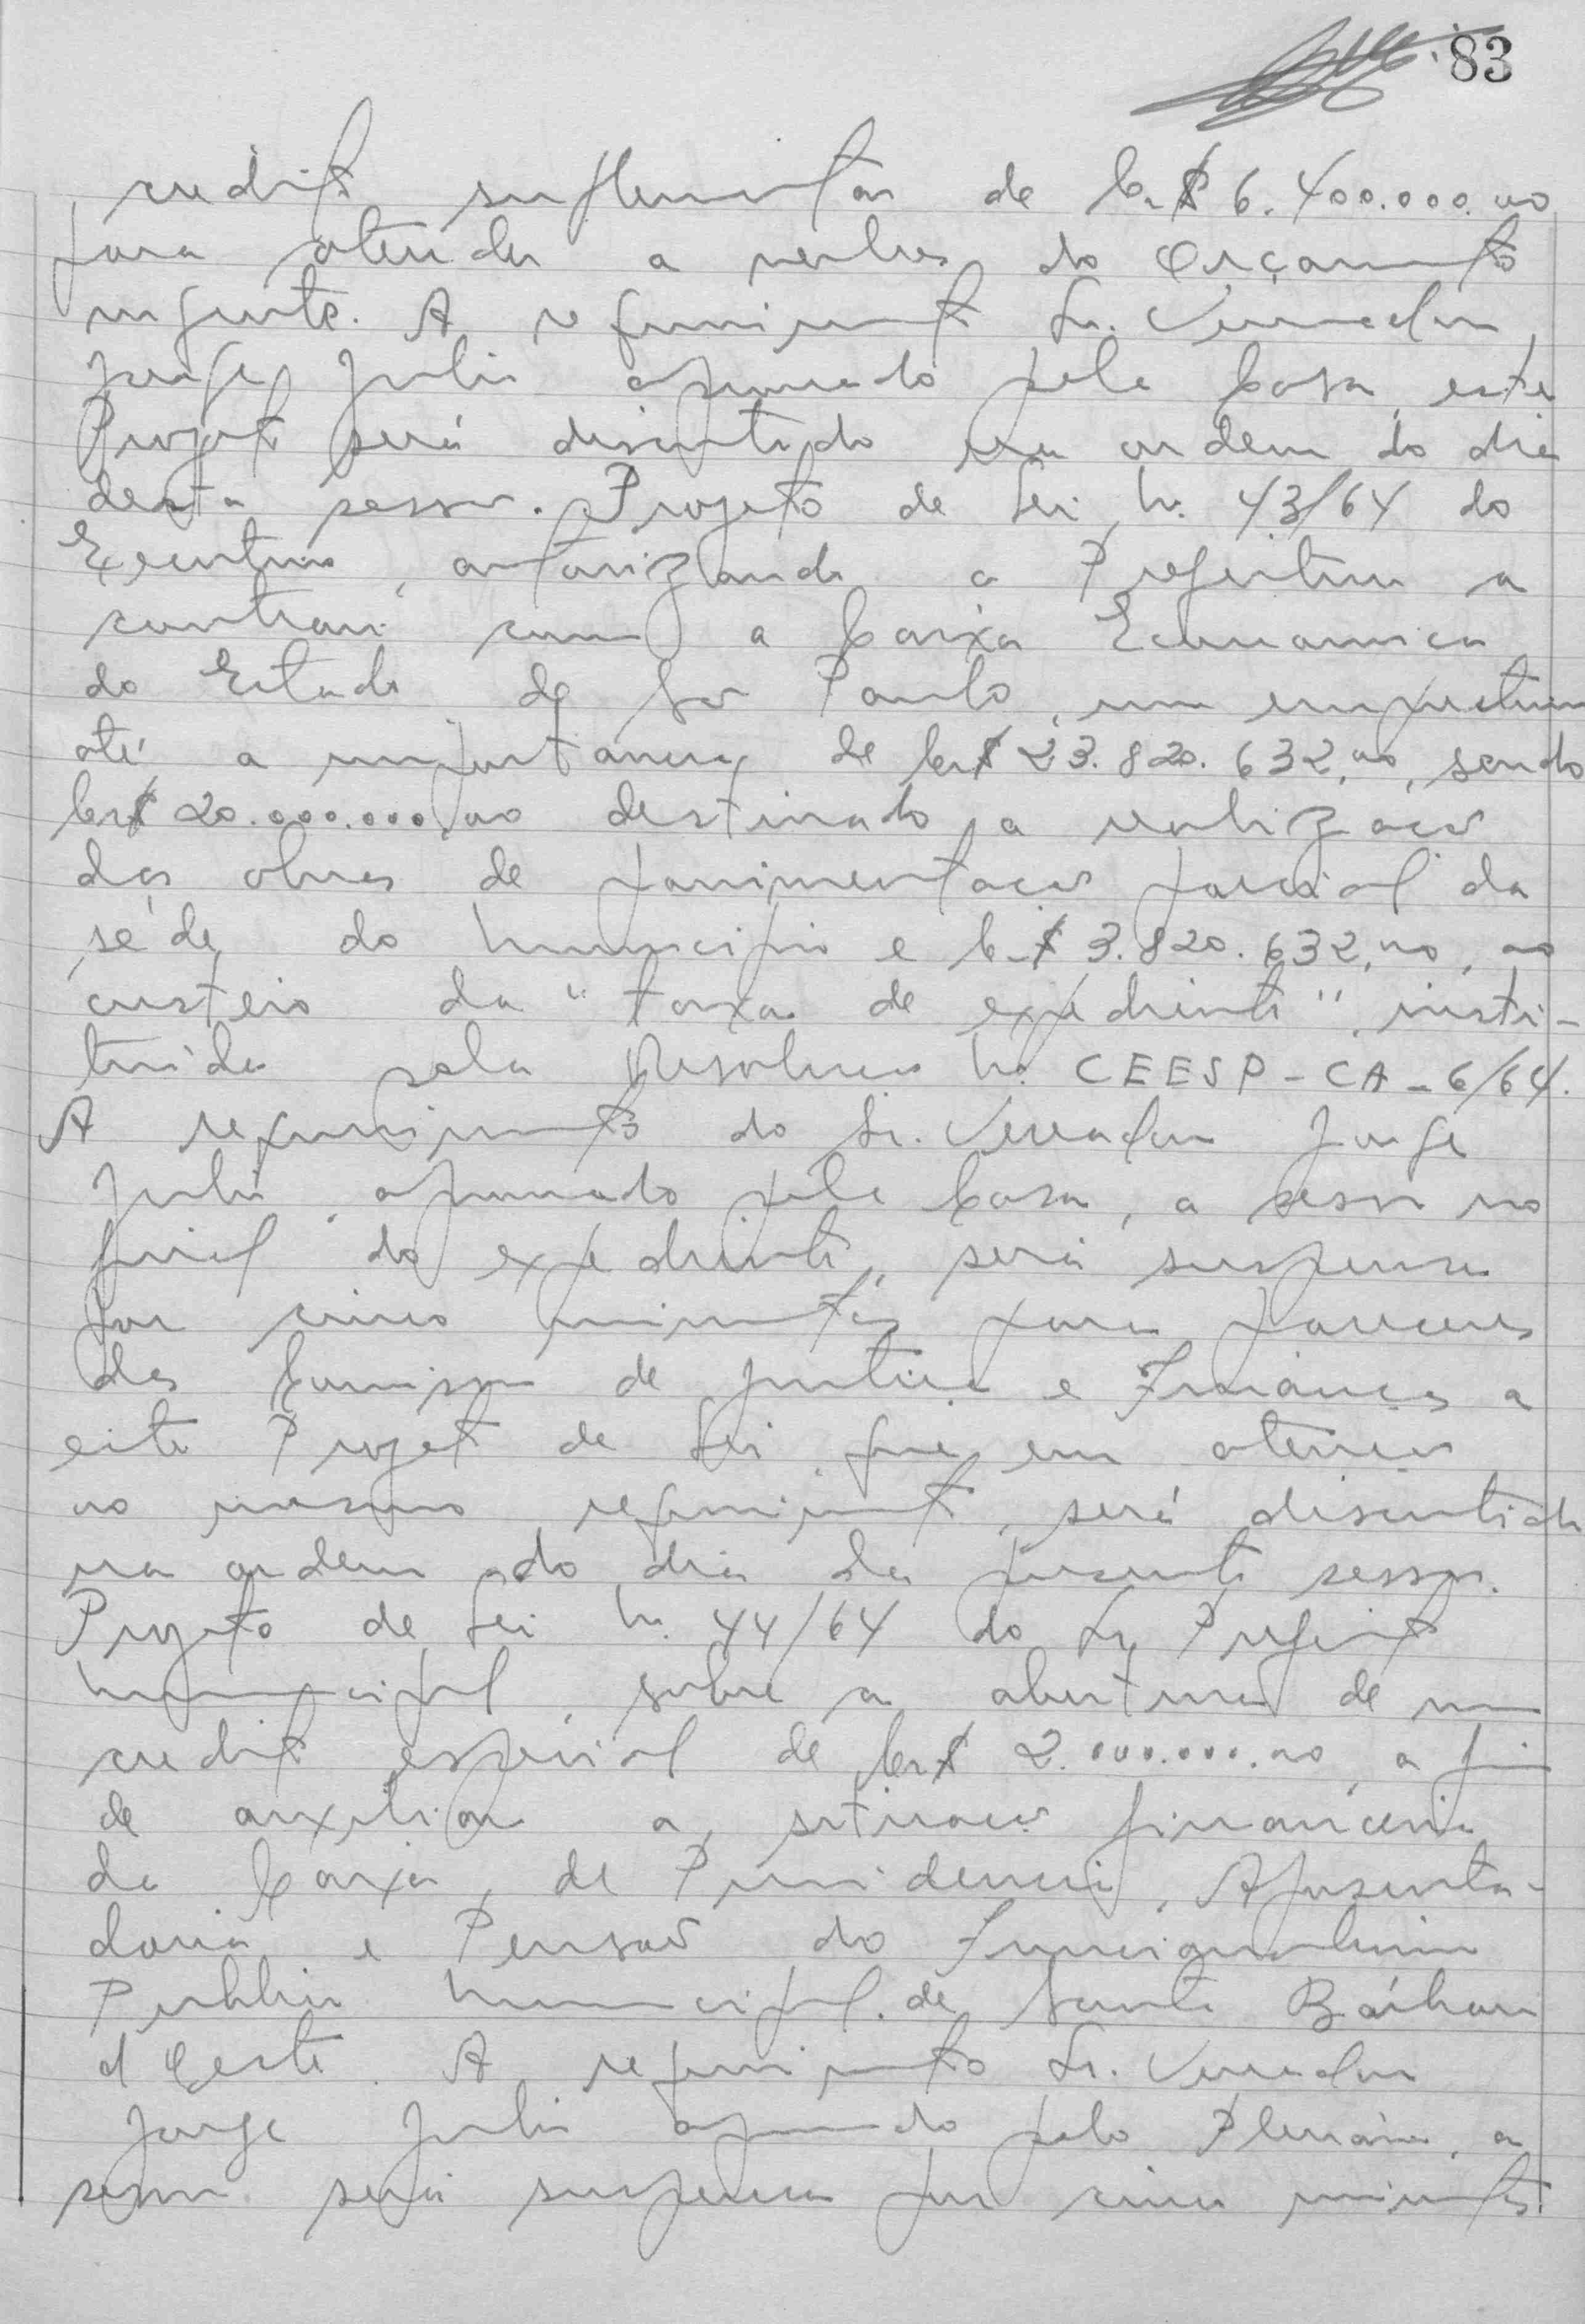 83
credito suplementar de Cr$ 6.400.000,00
para atender a verbas do Orçamento
vigente. A requerimento Sr. Vereador
Jorge Julio aprovado pela Casa, este
Projeto será discutido na ordem do dia
desta sessão. Projeto de Lei n. 43/64 do
Executivo, autorizando a Prefeitura a
contrair com a Caixa Economica
do Estado de São Paulo, um emprestimo
até a importancia de Cr$ 23.820.632,00, sendo
Cr$ 20.000.000,00 destinado a realização
das obras de pavimentação parcial da
séde do Municipio e Cr$ 3.820.632,00, ao
custeio da "taxa de expediente" insti-
tuida pela Resolução n. CEESP-CA-6/64.
A requerimento do Sr. Vereador Jorge
Julio, aprovado pela Casa, a sessão no
final do expediente, será suspensa
por cinco minutos para pareceres
das Comissão de Justiça e Finanças a
este Projeto de Lei que em atenção
ao mesmo requerimento, será discutido
na ordem do dia da presente sessão.
Projeto de Lei n. 44/64 do Sr. Prefeito
Municipal, sobre a abertura de um
credito especial de Cr$ 2.000.000,00, a fim
de auxiliar a situação financeira
da Caixa de Previdencia, Aposenta-
doria e Pensão do Funcionalismo
Publico Municipal de Santa Bárbara
d'Oeste. A requerimento Sr. Vereador
Jorge Julio aprovado pelo Plenário, a
sessão será suspensa por cinco minutos.